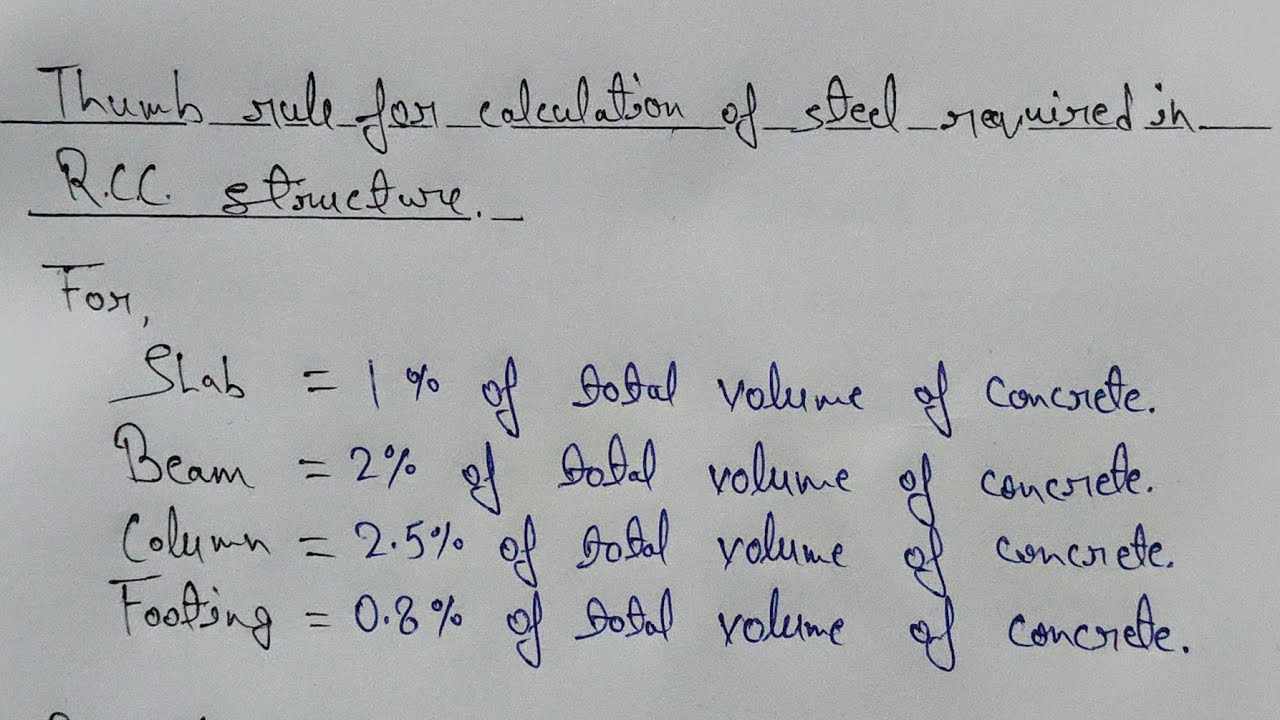 Thumb rule for calculation of steel required in
R.C.C. structure.
For,
Slab = 1% of total volume of concrete.
Beam = 2% of total volume of concrete.
Column = 2.5% of total volume of concrete.
Footing = 0.8% of total volume of concrete.